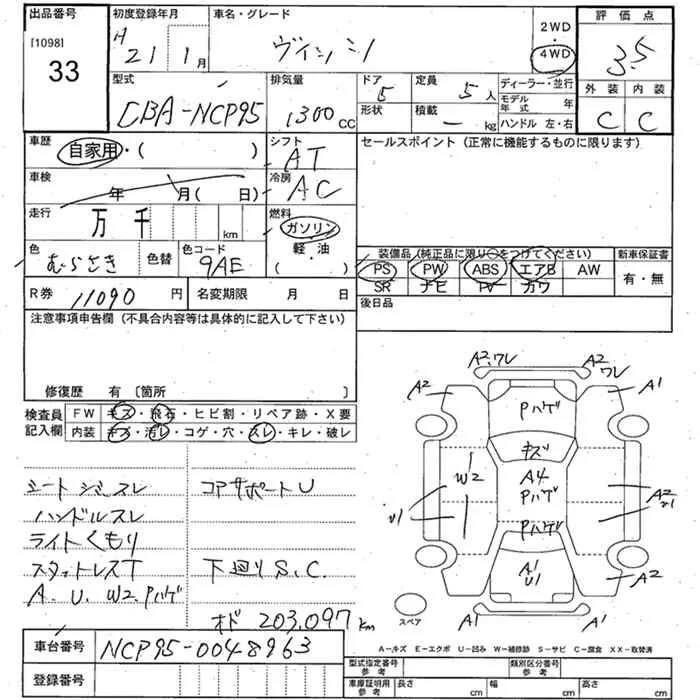 出品番号
[1098]
33
初度登録年月
H 21年 1月
車名・グレード
2WD
・
4WD
評価点
3.5
型式
CBA-NCP95
排気量
1300 CC
ドア
5
定員
5人
ディーラー・並行
形状
積載
— kg
モデル年式 年
ハンドル 左・右
外装 内装
C C
車歴
自家用・( )
シフト
AT
セールスポイント (正常に機能するものに限ります)
車検
年 月( 日)
冷房
AC
走行
万 千 km
燃料
ガソリン
軽・油
( )
色
むらさき
色替
色コード
9AE
装備品 (純正品に限り○をつけてください)
新車保証書
PS PW ABS エアB AW
SR ナビ TV カワ
有・無
R券 11090 円
名変期限 月 日
後日品
注意事項申告欄 (不具合内容等は具体的に記入して下さい)
修復歴 有 〔箇所 〕
検査員記入欄
FW キズ・飛石・ヒビ割・リペア跡・X要
内装 キズ・汚レ・コゲ・穴・スレ・キレ・破レ
シートシミスレ
コアサポートU
ハンドルスレ
ライトくもり
スタットレスT
下廻りS.C.
A. U. W2. Pハゲ
オド 203,097 km
A2.ワレ
A2
ワレ
A2
A1
Pハゲ
キズ
W2
A4
Pハゲ
A2
U1
U1
Pハゲ
A1
U1
A2
A1
A1
スペア
車台番号
NCP95-0048963
登録番号
A-キズ E-エクボ U-凹み W-補修跡 S-サビ C-腐食 XX-取替済
型式指定番号
参考
類別区分番号
参考
車庫証明用
参考
長さ cm
幅 cm
高さ cm